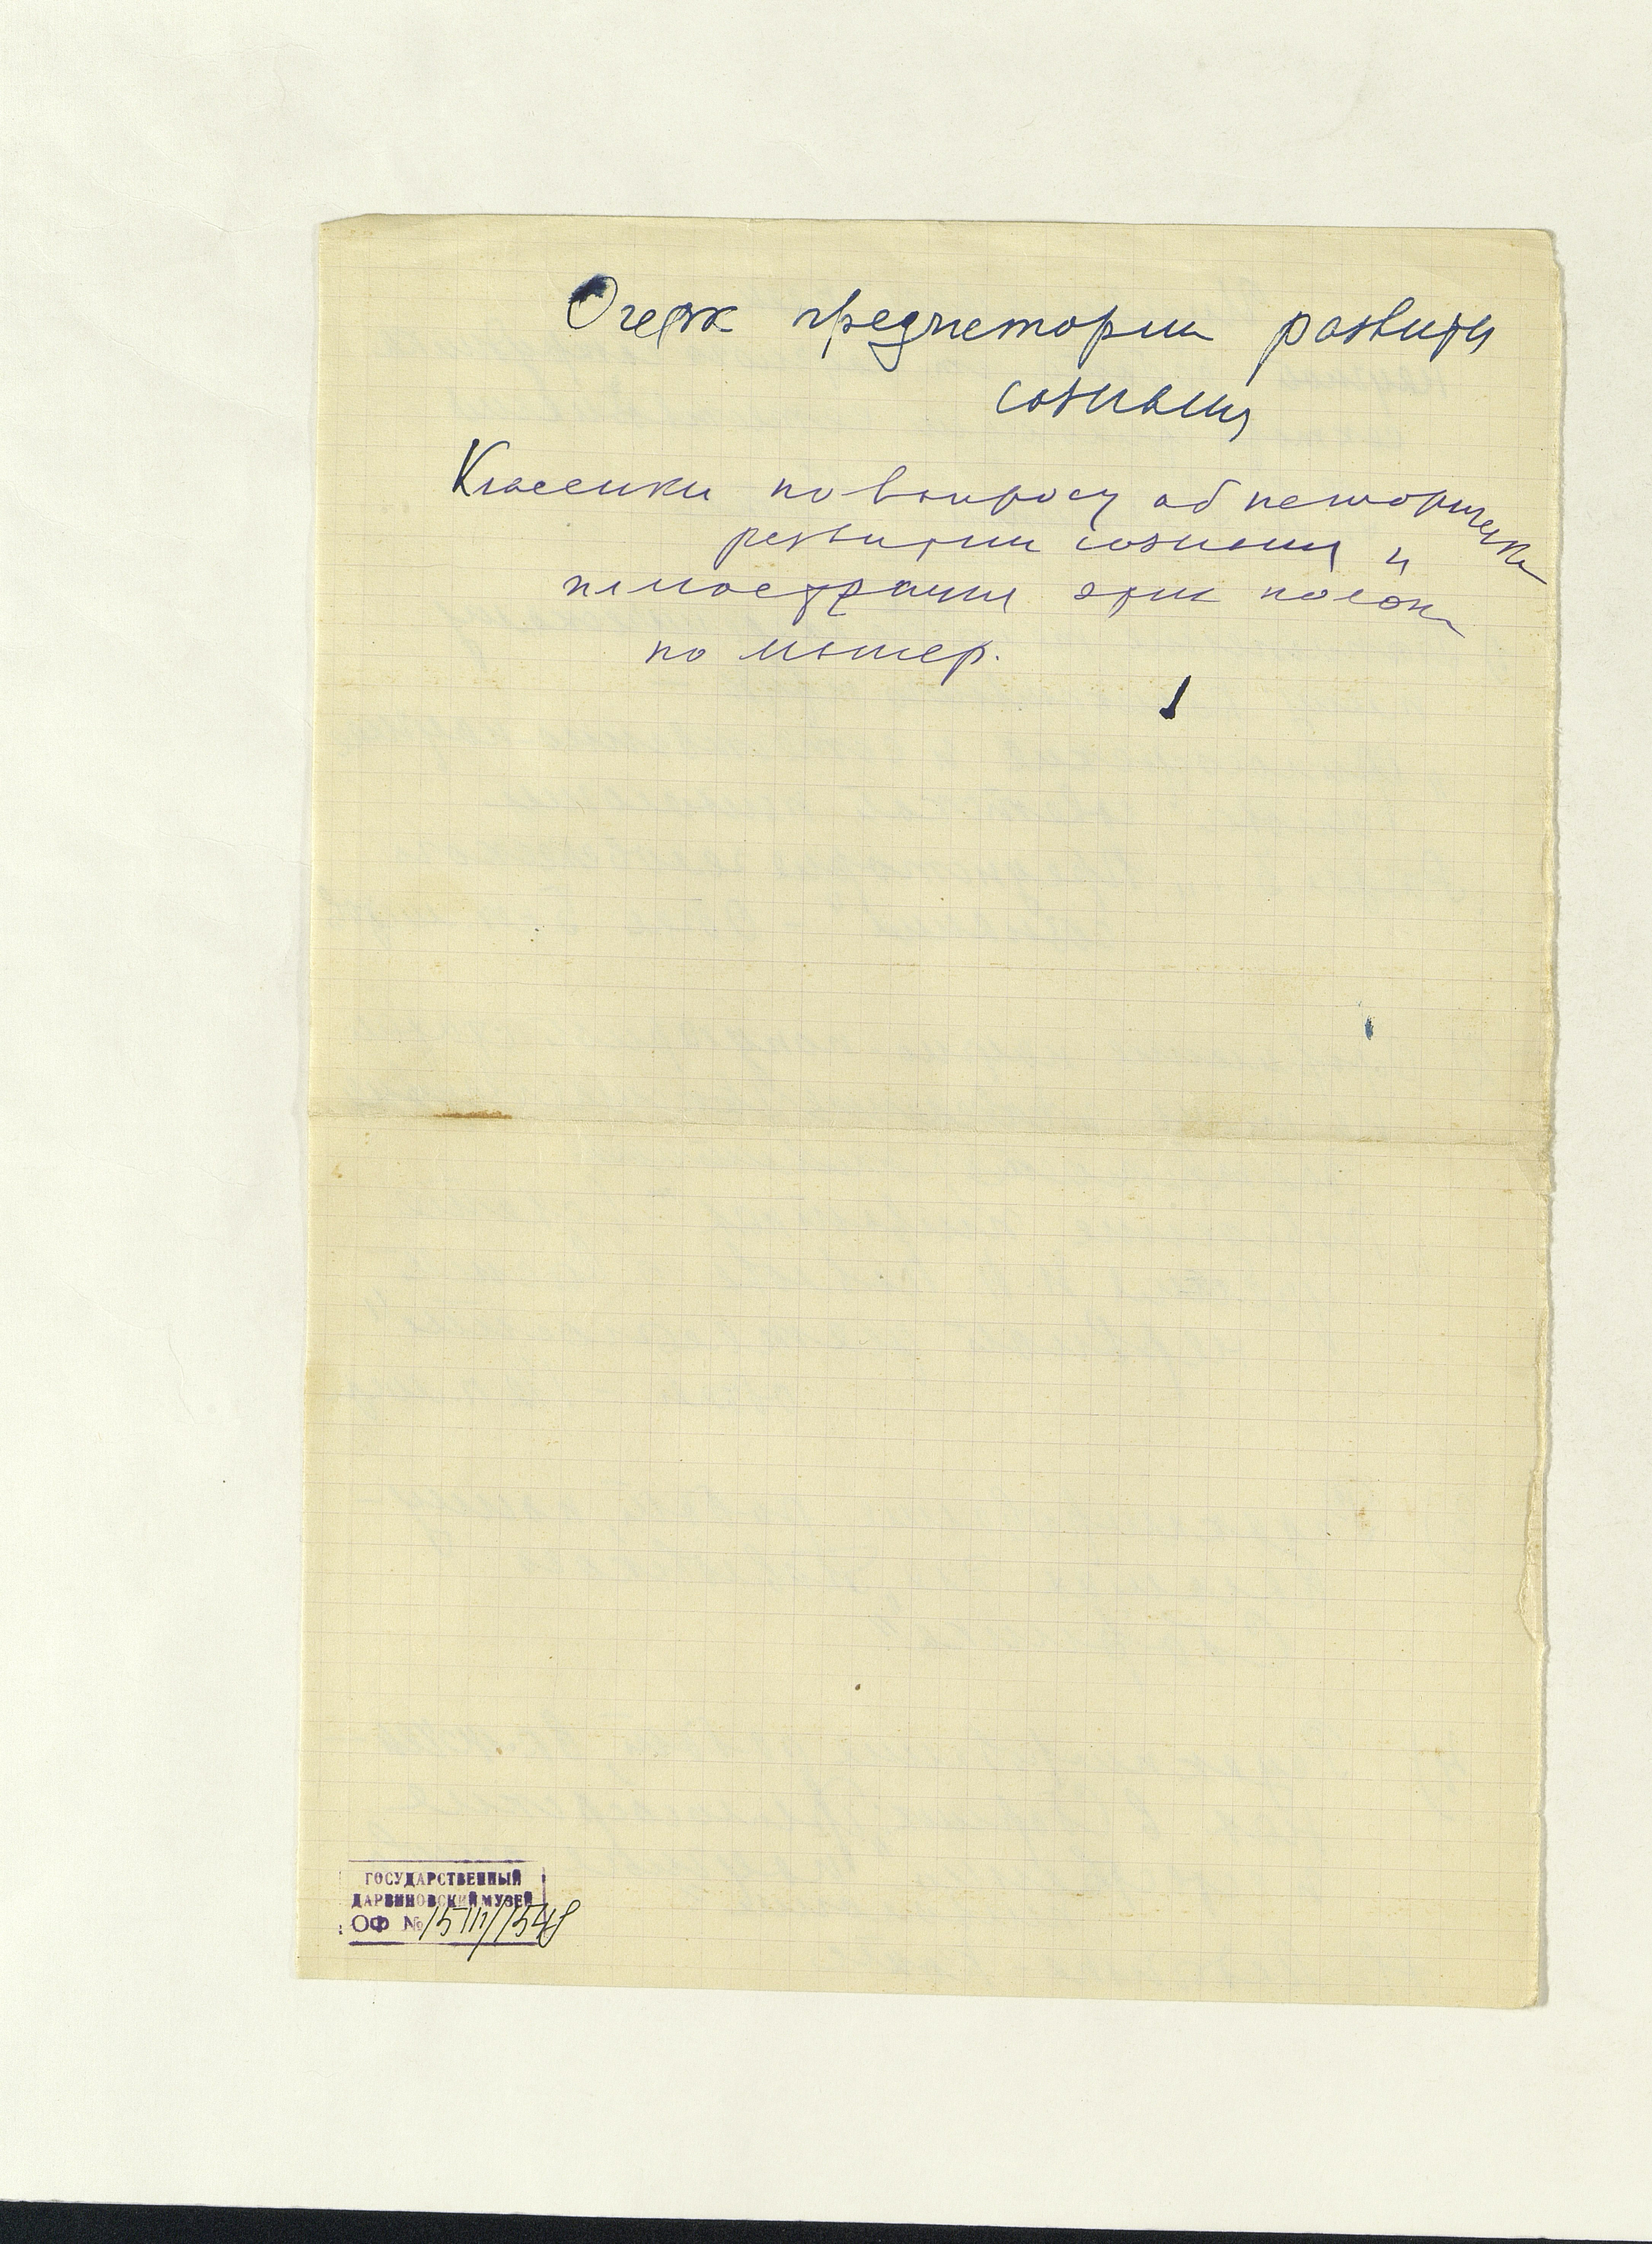 Очерк предистории развития
сознания
Классики по вопросу об историческ
развитии сознания и
иллюстрация этих полож
по матер.
ГОСУДАРСТВЕННЫЙ
ДАРВИНОВСКИЙ МУЗЕЙ
ОФ №